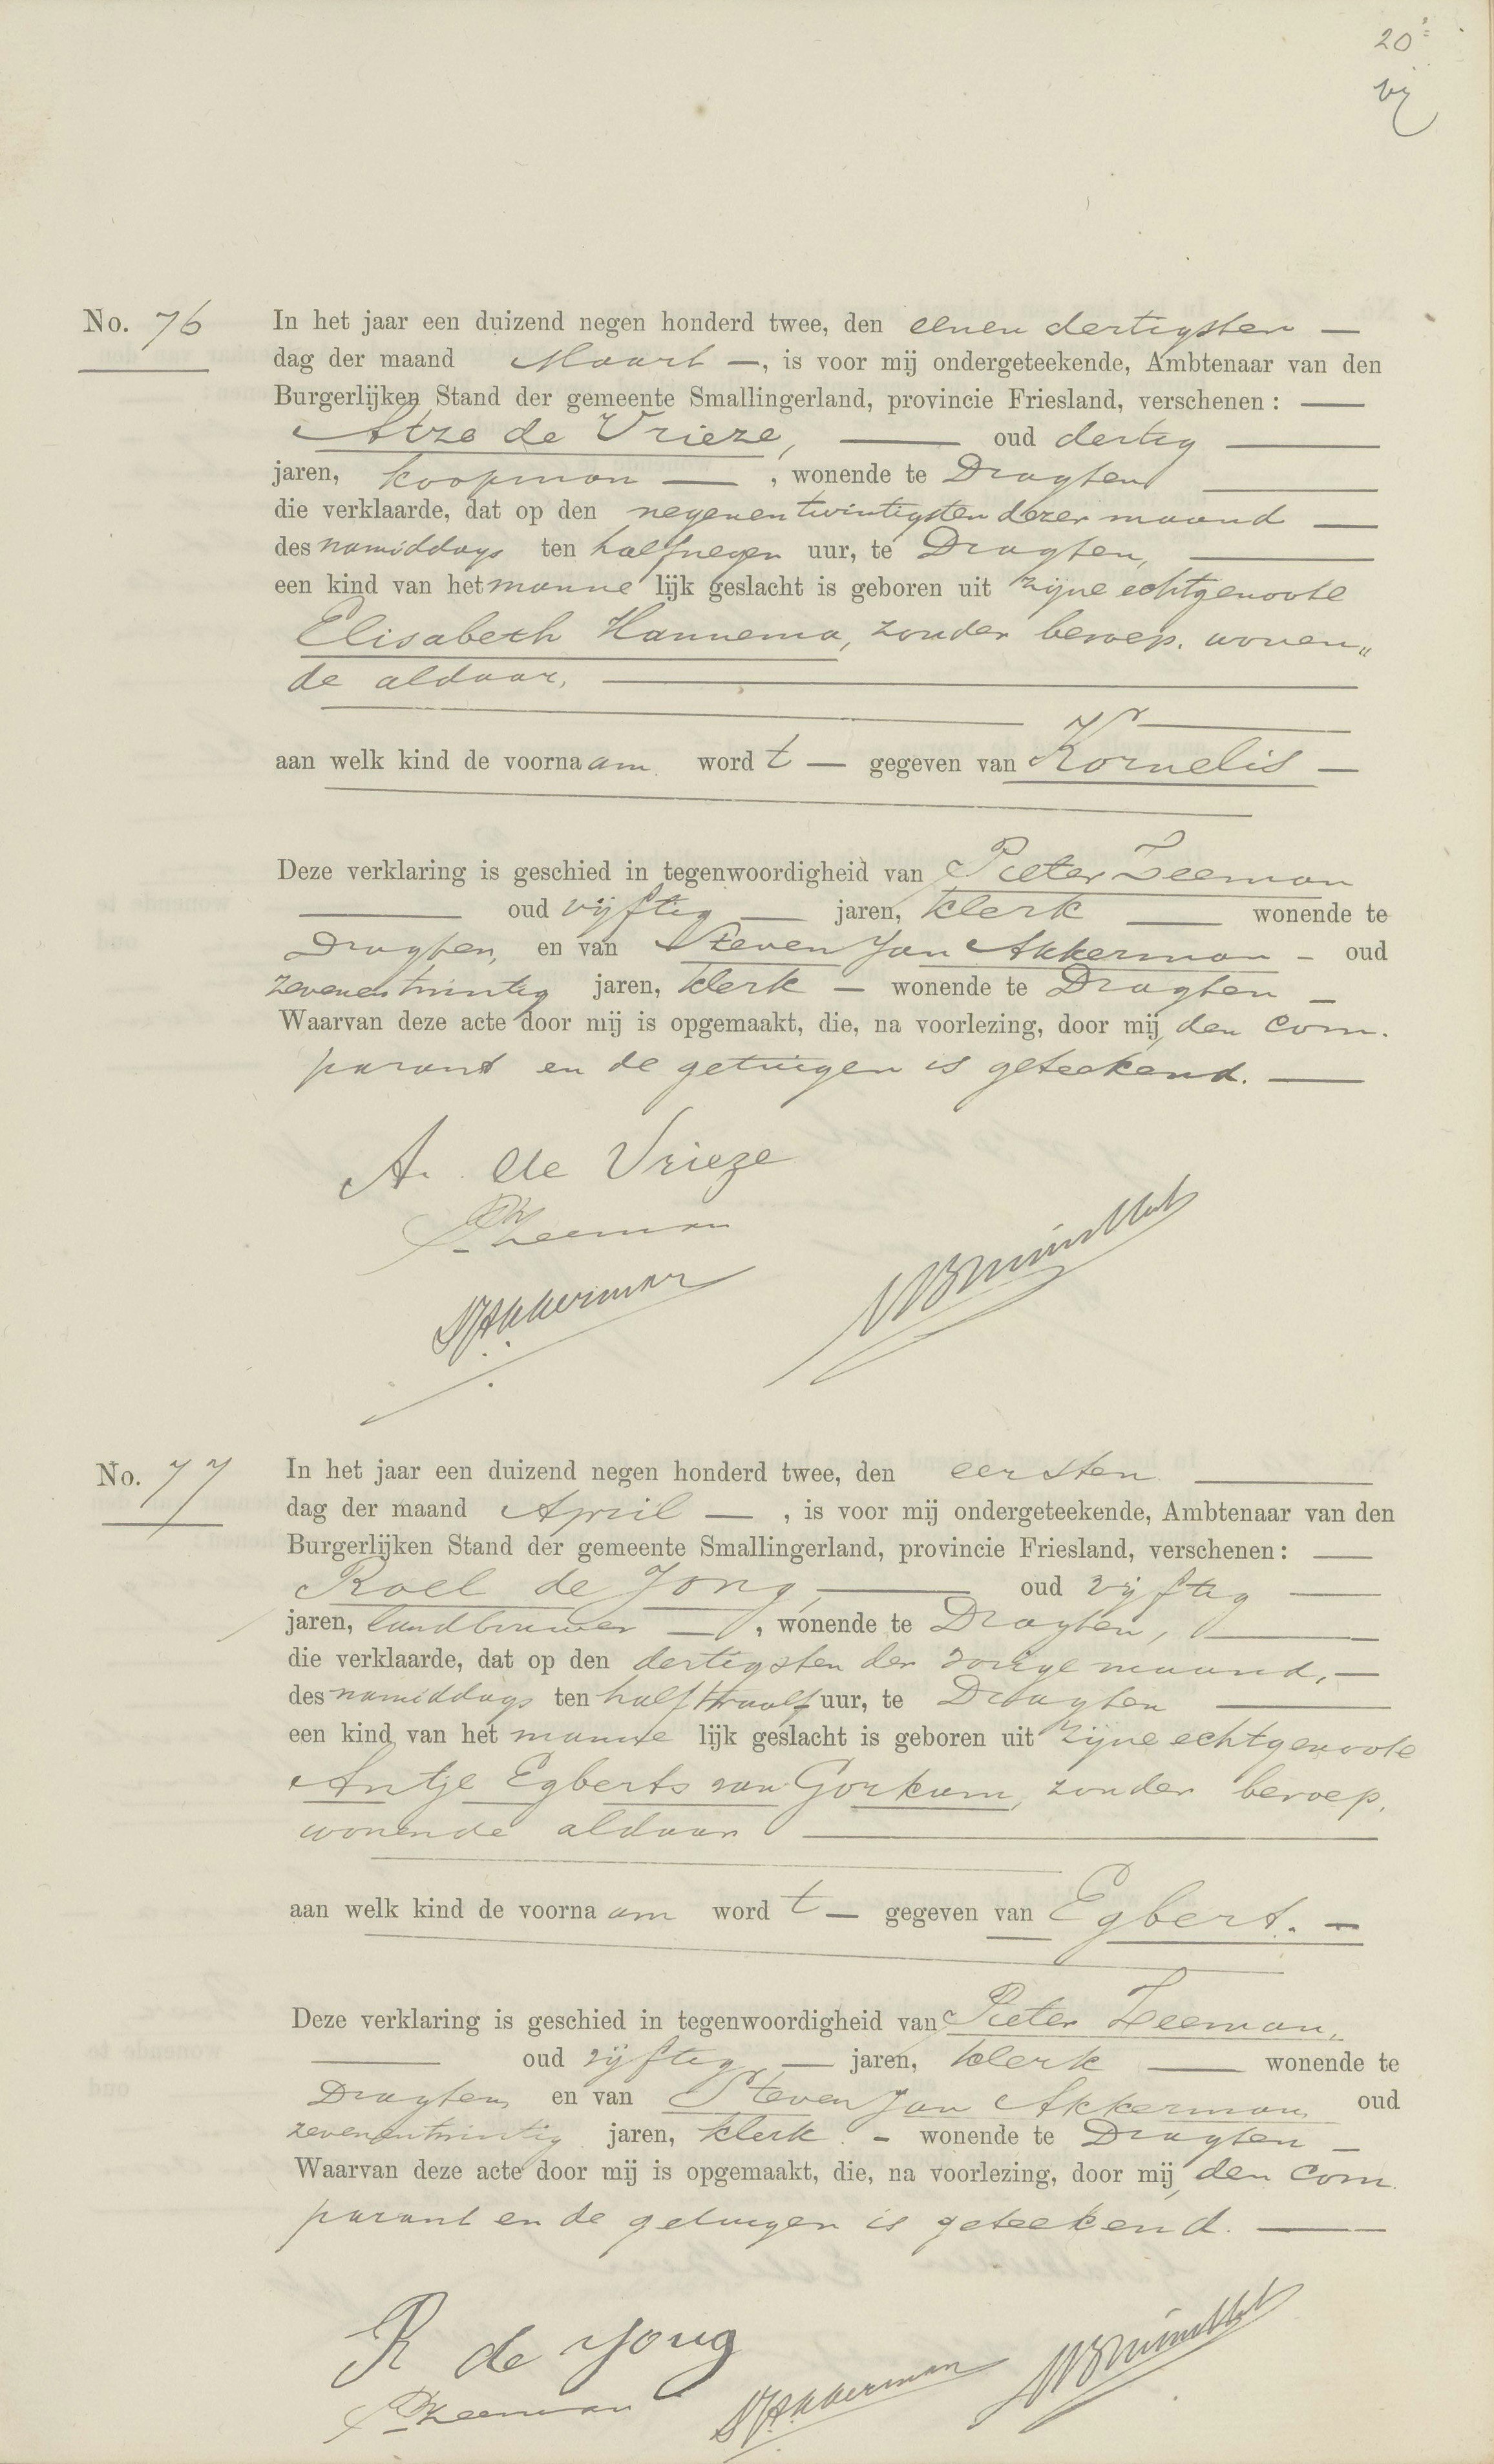 20
No. 76
In het jaar een duizend negen honderd twee, den eenen dertigsten —
dag der maand Maart —, is voor mij ondergeteekende, Ambtenaar van den
Burgerlijken Stand der gemeente Smallingerland, provincie Friesland, verschenen: —
Atze de Vrieze, — oud dertig —
jaren, koopman —, wonende te Dragten —
die verklaarde, dat op den negenentwintigsten dezer maand —
des namiddags ten half negen uur, te Dragten, —
een kind van het mannelijk geslacht is geboren uit zijne echtgenoote
Elisabeth Hannema, zonder beroep, wonen„
de aldaar, —
aan welk kind de voornaam wordt — gegeven van Kornelis —
Deze verklaring is geschied in tegenwoordigheid van Pieter Zeeman
— oud vijftig — jaren, klerk — wonende te
Dragten, en van Steven Jan Akkerman — oud
zevenentwintig jaren, klerk — wonende te Dragten —
Waarvan deze acte door mij is opgemaakt, die, na voorlezing, door mij, den com.
parant en de getuigen is geteekend. —
A. de Vrieze
P Zeeman
SJAkkerman
No. 77
In het jaar een duizend negen honderd twee, den eersten —
dag der maand April —, is voor mij ondergeteekende, Ambtenaar van den
Burgerlijken Stand der gemeente Smallingerland, provincie Friesland, verschenen: —
Roel de Jong, — oud vijftig —
jaren, landbouwer —, wonende te Dragten, —
die verklaarde, dat op den dertigsten der vorige maand, —
des namiddags ten half twaalf uur, te Dragten —
een kind van het mannelijk geslacht is geboren uit zijne echtgenoote
Antje Egberts van Gorkum, zonder beroep,
wonende aldaar —
aan welk kind de voornaam wordt — gegeven van Egbert. —
Deze verklaring is geschied in tegenwoordigheid van Pieter Zeeman,
— oud vijftig, — jaren, klerk — wonende te
Dragten, en van Steven Jan Akkerman, oud
zevenentwintig jaren, klerk — wonende te Dragten —
Waarvan deze acte door mij is opgemaakt, die, na voorlezing, door mij, den com.
parant en de getuigen is geteekend. —
R de Jong
P Zeeman
SJAkkerman